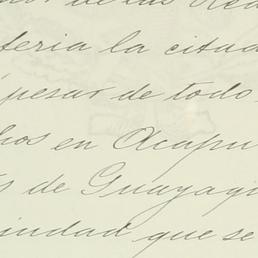 de las
teria la citad
pesar de todo
hos en Acapu
s de Guayaqui
iudad que se